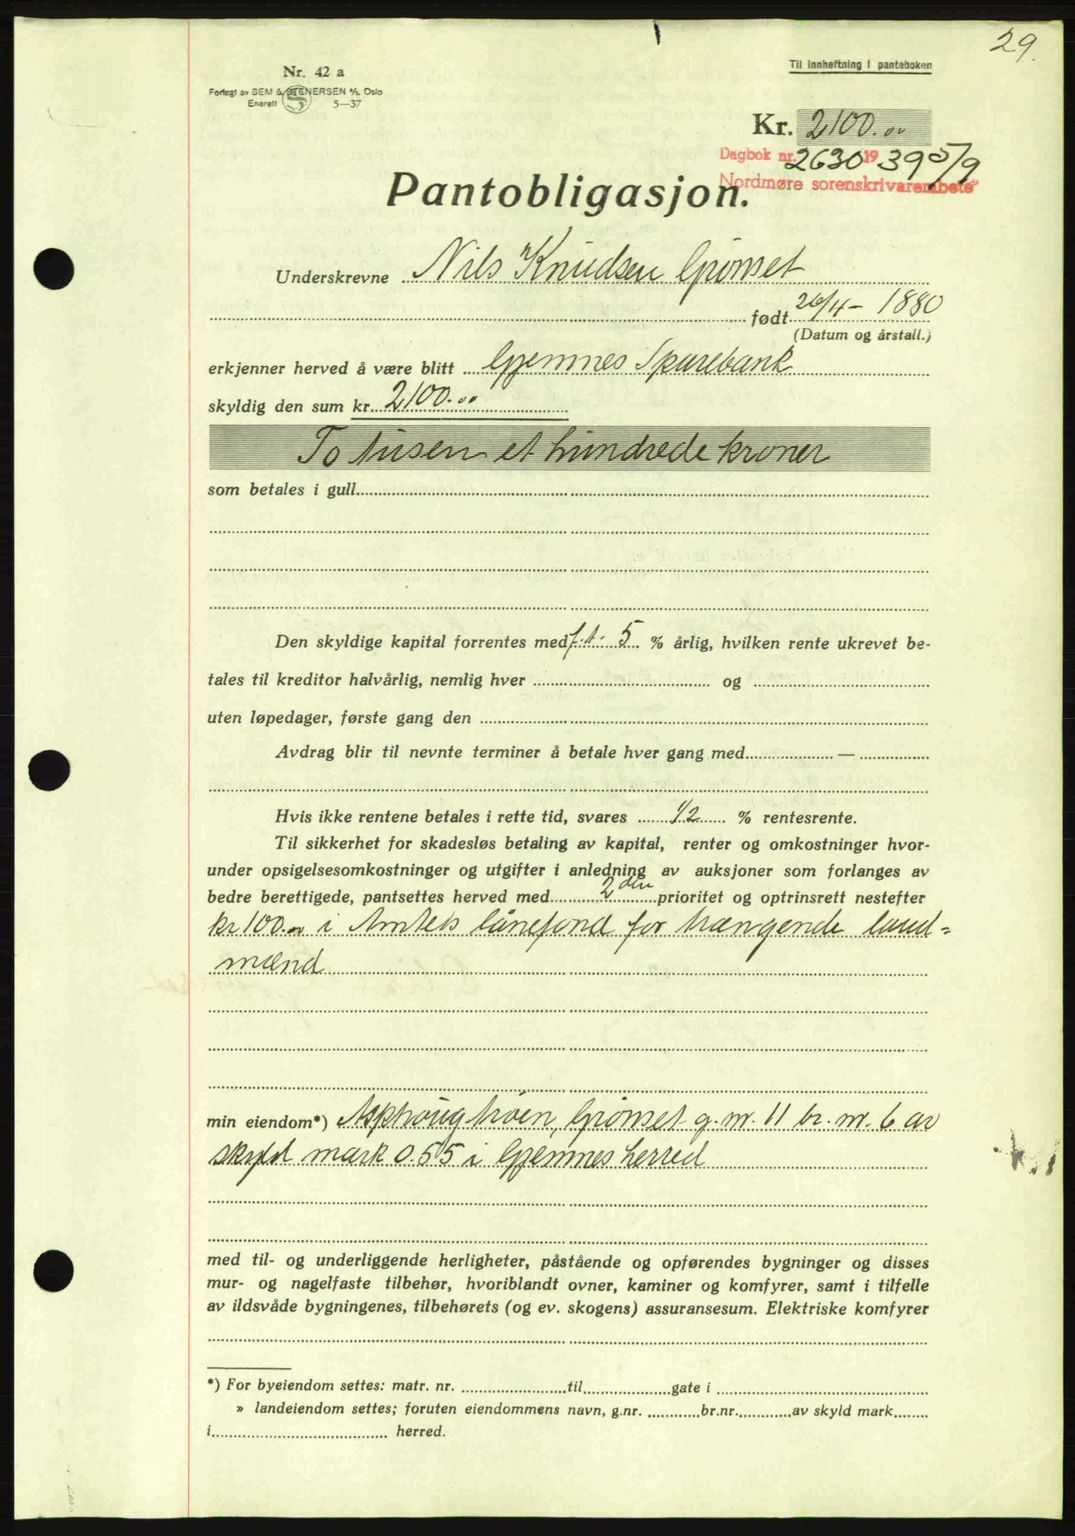 29.
Til innheftning i panteboken
Nr. 42 a
Forlagt av SEM & STENERSEN A/S, Oslo
Enerett 5—37
Kr. 2100.00
Dagbok nr. 2630 19 39 5/9
Nordmøre sorenskriverembete
Pantobligasjon.
Underskrevne Nils Knudsen Grimset
født 26/4 - 1880
(Datum og årstall.)
erkjenner herved å være blitt Gjemnes Sparebank
skyldig den sum kr. 2100.00
To tusen et hundrede kroner
som betales i gull
Den skyldige kapital forrentes med f.t. 5 % årlig, hvilken rente ukrevet be-
tales til kreditor halvårlig, nemlig hver og
uten løpedager, første gang den
Avdrag blir til nevnte terminer å betale hver gang med —
Hvis ikke rentene betales i rette tid, svares 1/2 % rentesrente.
Til sikkerhet for skadesløs betaling av kapital, renter og omkostninger hvor-
under opsigelsesomkostninger og utgifter i anledning av auksjoner som forlanges av
bedre berettigede, pantsettes herved med 2den prioritet og optrinsrett nestefter
kr 100.00 i Amtets lånefond for trængende land=
mænd
min eiendom*) Asphaugtrøen, Grimset g. nr. 11 br. nr. 6 av
skyld mark 0.55 i Gjemnes herred
med til- og underliggende herligheter, påstående og opførendes bygninger og disses
mur- og nagelfaste tilbehør, hvoriblandt ovner, kaminer og komfyrer, samt i tilfelle
av ildsvåde bygningenes, tilbehørets (og ev. skogens) assuransesum. Elektriske komfyrer
*) For byeiendom settes: matr. nr. til gate i
» landeiendom settes; foruten eiendommens navn, g.nr. br.nr. av skyld mark
i herred.